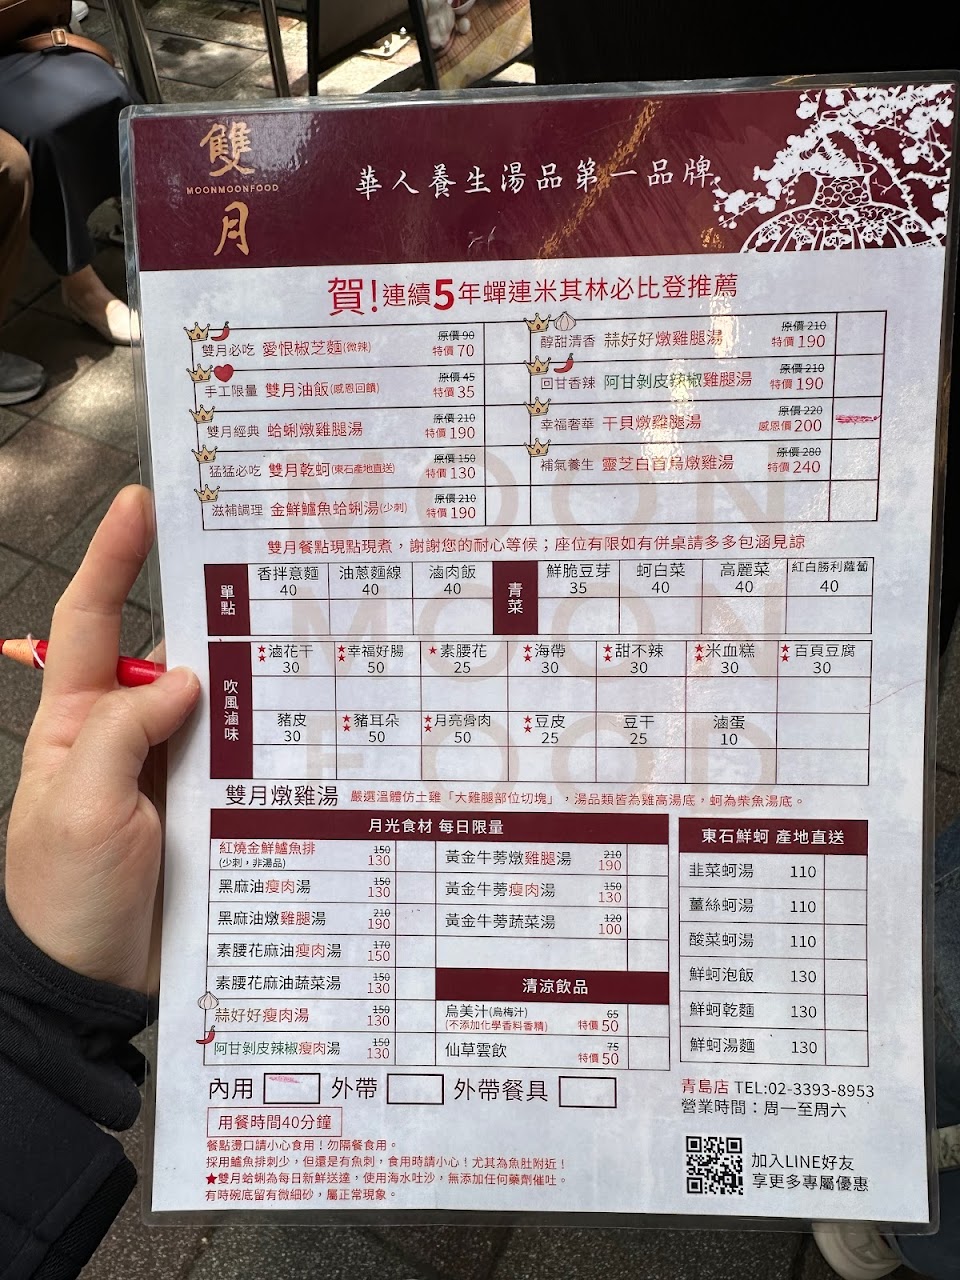 雙月
MOONMOONFOOD
華人養生湯品第一品牌
賀!連續5年蟬連米其林必比登推薦
雙月必吃 愛恨椒芝麵(微辣) 原價90 特價70
手工限量 雙月油飯(感恩回饋) 原價45 特價35
雙月經典 蛤蜊燉雞腿湯 原價210 特價190
猛猛必吃 雙月乾蚵(東石產地直送) 原價150 特價130
滋補調理 金鮮鱸魚蛤蜊湯(少刺) 原價210 特價190
醇甜清香 蒜好好燉雞腿湯 原價210 特價190
回甘香辣 阿甘剝皮辣椒雞腿湯 原價210 特價190
幸福奢華 干貝燉雞腿湯 原價220 感恩價200
補氣養生 靈芝白首烏燉雞湯 原價280 特價240
雙月餐點現點現煮，謝謝您的耐心等候；座位有限如有併桌請多多包涵見諒
單點
香拌意麵 40
油蔥麵線 40
滷肉飯 40
青菜
鮮脆豆芽 35
蚵白菜 40
高麗菜 40
紅白勝利蘿蔔 40
吹風滷味
★★滷花干 30
★★幸福好腸 50
★素腰花 25
★★海帶 30
★★甜不辣 30
★★米血糕 30
★★百頁豆腐 30
豬皮 30
★★豬耳朵 50
★★月亮骨肉 50
★★豆皮 25
豆干 25
滷蛋 10
MOON
MOON
FOOD
雙月燉雞湯 嚴選溫體仿土雞「大雞腿部位切塊」，湯品類皆為雞高湯底，蚵為柴魚湯底。
月光食材 每日限量
紅燒金鮮鱸魚排 (少刺，非湯品) 150 130
黑麻油瘦肉湯 150 130
黑麻油燉雞腿湯 210 190
素腰花麻油瘦肉湯 170 150
素腰花麻油蔬菜湯 150 130
蒜好好瘦肉湯 150 130
阿甘剝皮辣椒瘦肉湯 150 130
黃金牛蒡燉雞腿湯 210 190
黃金牛蒡瘦肉湯 150 130
黃金牛蒡蔬菜湯 120 100
清涼飲品
烏美汁(烏梅汁) (不添加化學香料香精) 65 特價50
仙草雲飲 75 特價50
東石鮮蚵 產地直送
韭菜蚵湯 110
薑絲蚵湯 110
酸菜蚵湯 110
鮮蚵泡飯 130
鮮蚵乾麵 130
鮮蚵湯麵 130
內用 外帶 外帶餐具
用餐時間40分鐘
餐點燙口請小心食用！勿隔餐食用。
採用鱸魚排刺少，但還是有魚刺，食用時請小心！尤其為魚肚附近！
★雙月蛤蜊為每日新鮮送達，使用海水吐沙，無添加任何藥劑催吐。
有時碗底留有微細砂，屬正常現象。
青島店 TEL:02-3393-8953
營業時間：周一至周六
加入LINE好友
享更多專屬優惠